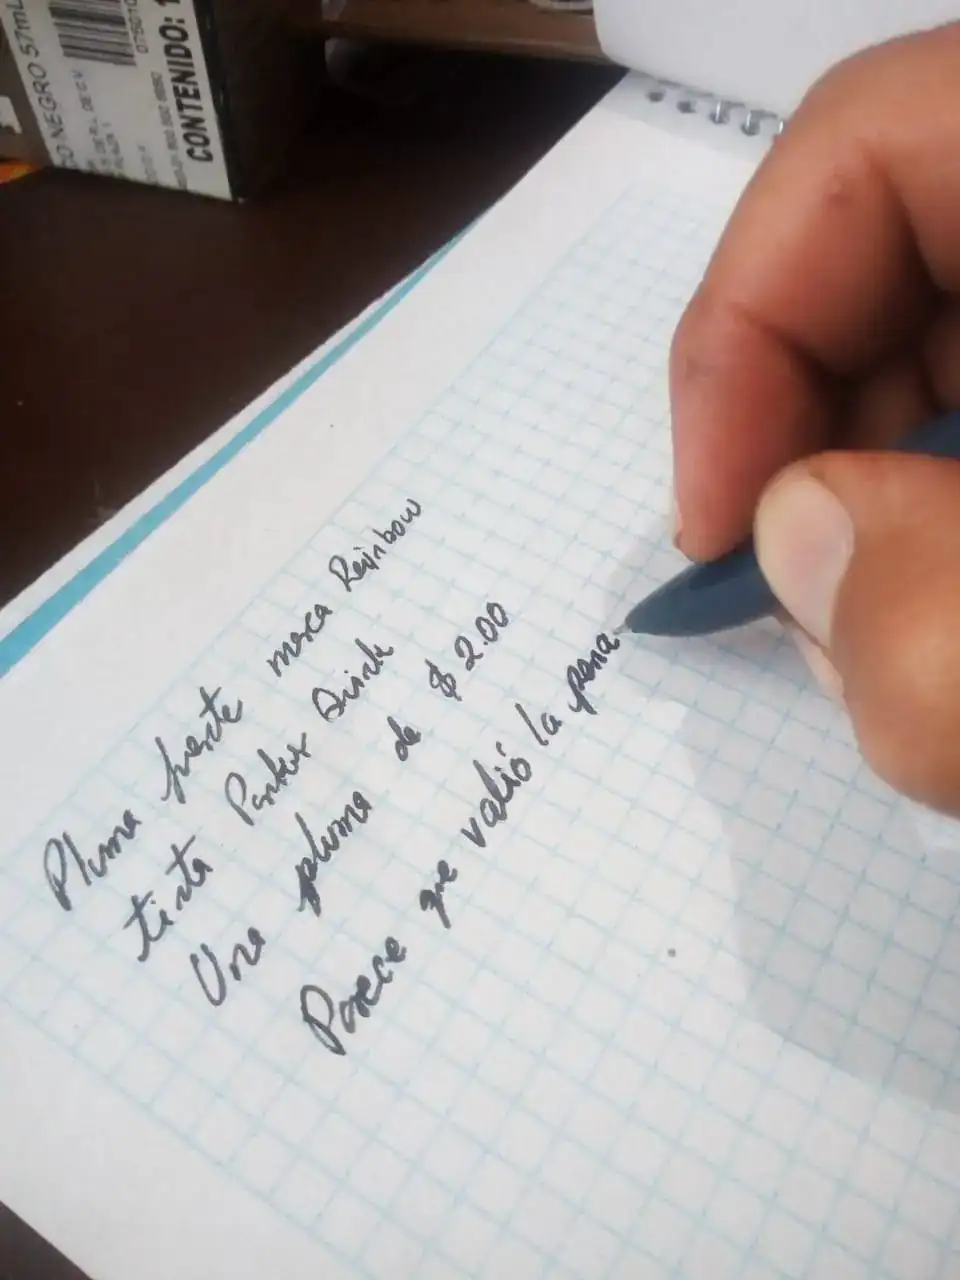 O NEGRO 57mL
CONTENIDO: 1
Pluma fuente marca Rainbow
tinta Parker Quink
Una pluma de $ 2.00
Parece que valió la pena